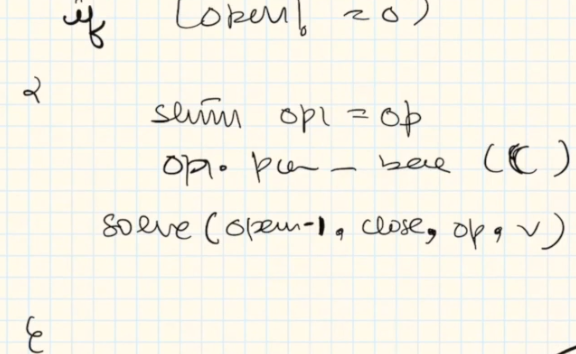 if (open != 0)
{
string op1 = op
op1. push_back ( ( )
solve (open-1, close, op, v)
}